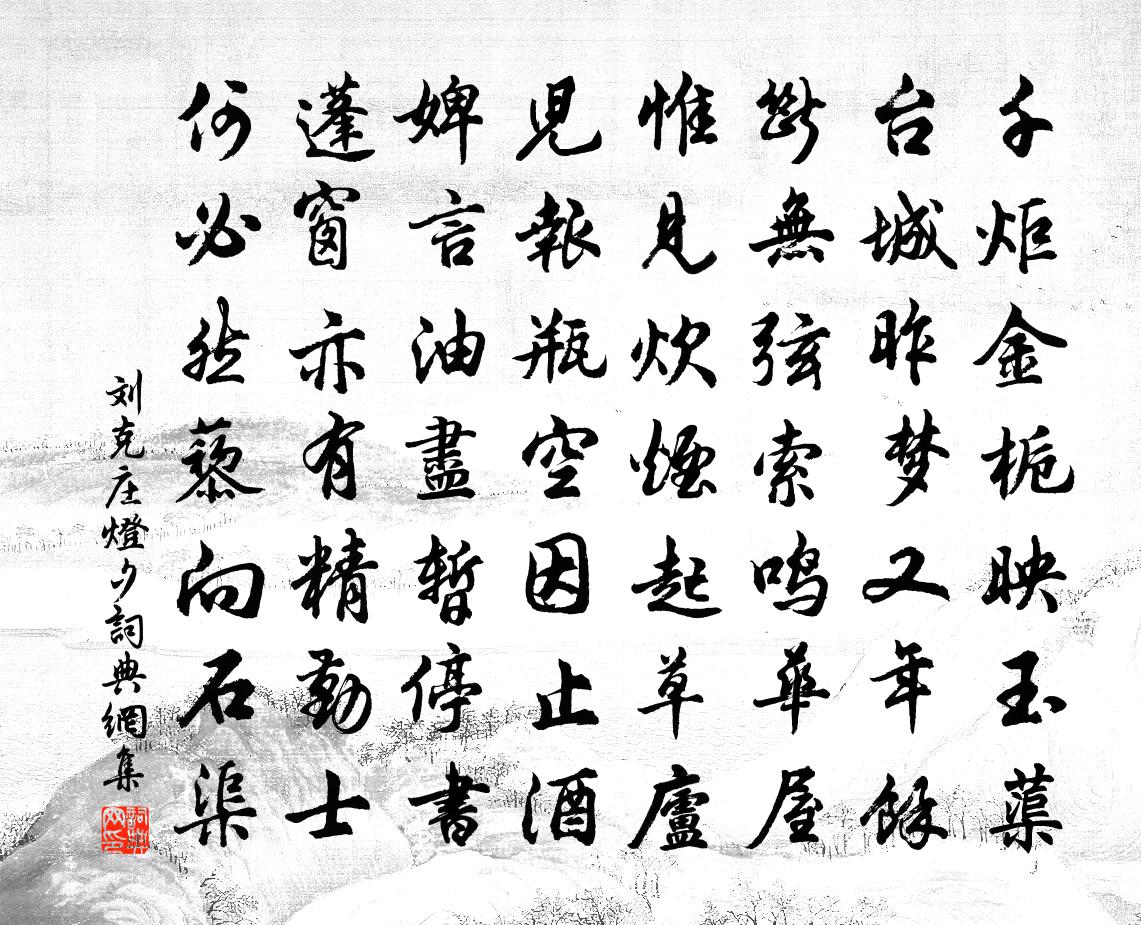 千炬金枙映玉蕖
台城昨梦又年餘
斷無弦索鸣華屋
惟見炊煙起草廬
児報瓶空因止酒
婢言油盡暫停書
蓬窗亦有精勤士
何必然藜向石渠
刘克庄燈夕詞典網集